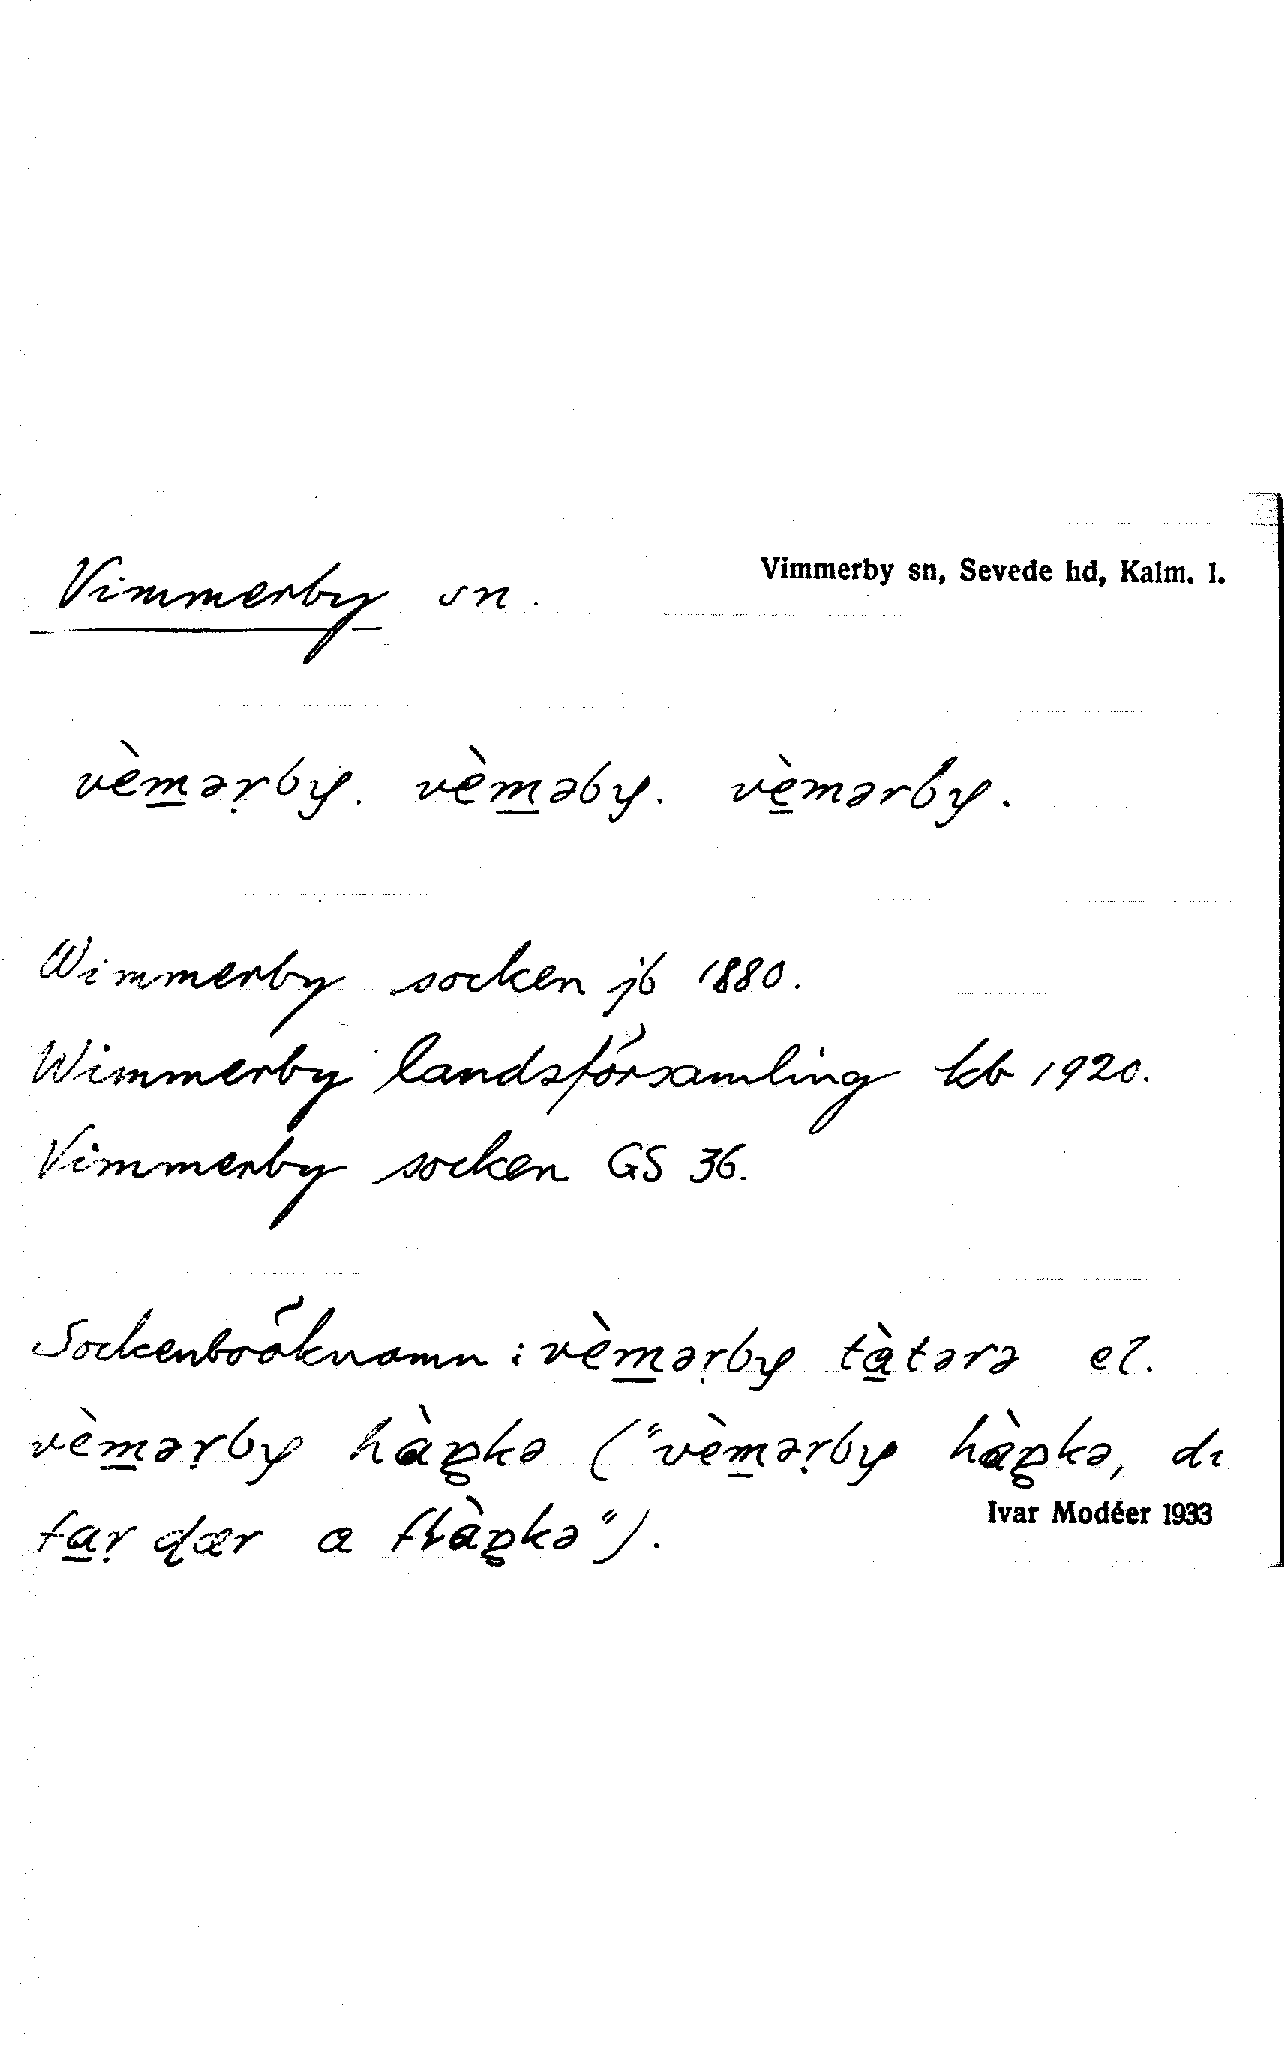 Vimmerby sn.
Vimmerby sn, Sevede hd, Kalm. l.
vèm̲ərby. vèm̲əby. vè̲mərby.
Wimmerby socken jb 1880.
Wimmerby landsförsamling kb 1920.
Vimmerby socken GS 36.
Sockenboöknamn: vèm̲ərby tà̲tərə el.
vèm̲ərby hàŋkə ("vèm̲ərby hàŋkə, dɩ
ta̲r dær a flàŋkə").
Ivar Modéer 1933